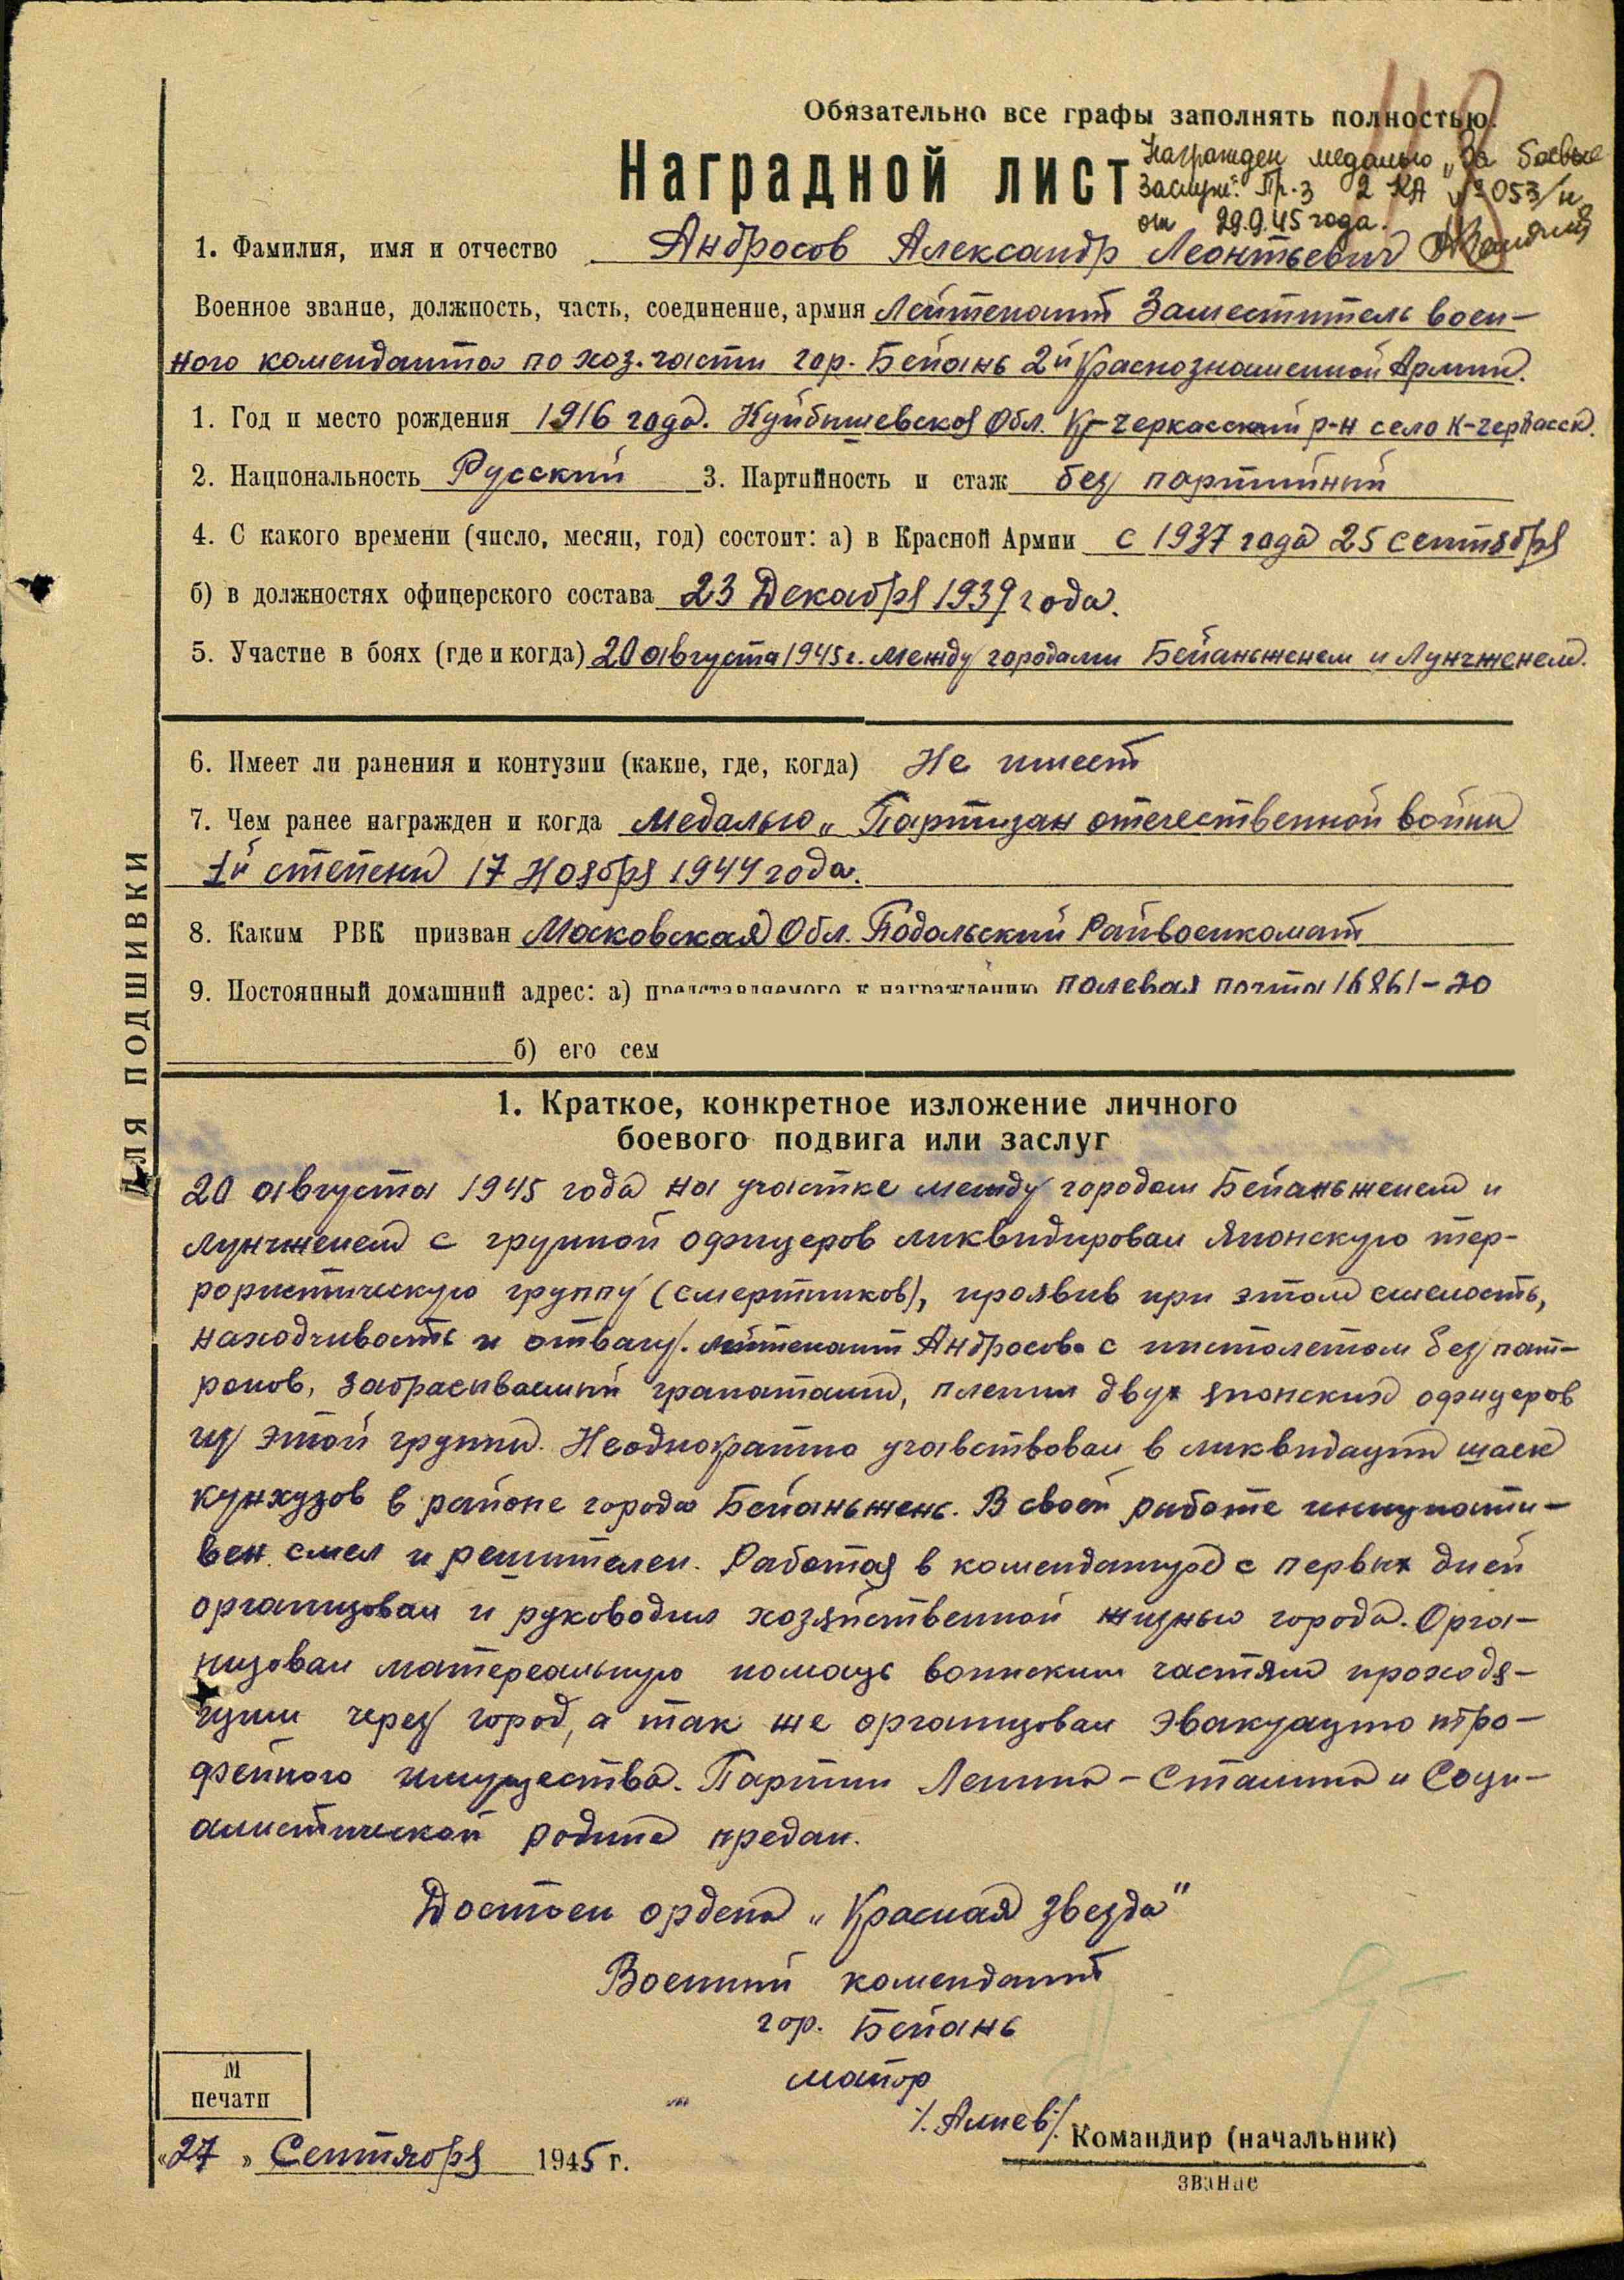 Обязательно все графы заполнять полностью.
Наградной лист
Награжден медалью „За боевые
заслуги". Пр-з 2 КА № 053/н
от 29.9.45 года.
1. Фамилия, имя и отчество Андросов Александр Леонтьевич
Военное звание, должность, часть, соединение, армия Лейтенант Заместитель воен-
ного коменданта по хоз. части гор. Бейань 2й Краснознаменной Армии.
1. Год и место рождения 1916 года. Куйбышевская Обл. Кр-Черкасский р-н село К-Черкасск.
2. Национальность Русский 3. Партийность и стаж без партийный
4. С какого времени (число, месяц, год) состоит: а) в Красной Армии с 1937 года 25 сентября
б) в должностях офицерского состава 23 Декабря 1939 года.
5. Участие в боях (где и когда) 20 августа 1945 г. между городами Бейаньженем и Лунчженем.
6. Имеет ли ранения и контузии (какие, где, когда) Не имеет
7. Чем ранее награжден и когда медалью „Партизан отечественной войны
1й степени 17 Ноября 1944 года.
8. Каким РВК призван Московская Обл. Подольский Райвоенкомат
9. Постоянный домашний адрес: а) представляемого к награждению полевая почта 16861-20
б) его сем
ДЛЯ ПОДШИВКИ
1. Краткое, конкретное изложение личного
боевого подвига или заслуг
20 августа 1945 года на участке между городом Бейаньженем и
Лунчженем с группой офицеров ликвидировал Японскую тер-
рористическую группу (смертников), проявив при этом смелость,
находчивость и отвагу. Лейтенант Андросов с пистолетом без пат-
ронов, забрасываемый гранатами, пленил двух японских офицеров
из этой группы. Неоднократно учавствовал в ликвидации шаек
кунхузов в районе города Бейаньжень. В своей работе инициати-
вен смел и решителен. Работая в комендатуре с первых дней
организовал и руководил хозяйственной жизнью города. Орга-
низовал матереальную помощь воинским частям проходя-
щим через город, а так же организовал эвакуацию тро-
фейного имущества. Партии Ленина - Сталина и Соци-
алистической родине предан.
Достоен ордена „Красная звезда"
Военный комендант
гор. Бейань
майор
/. Алиев /.
Командир (начальник)
звание
М
печати
«27» Сентября 1945 г.